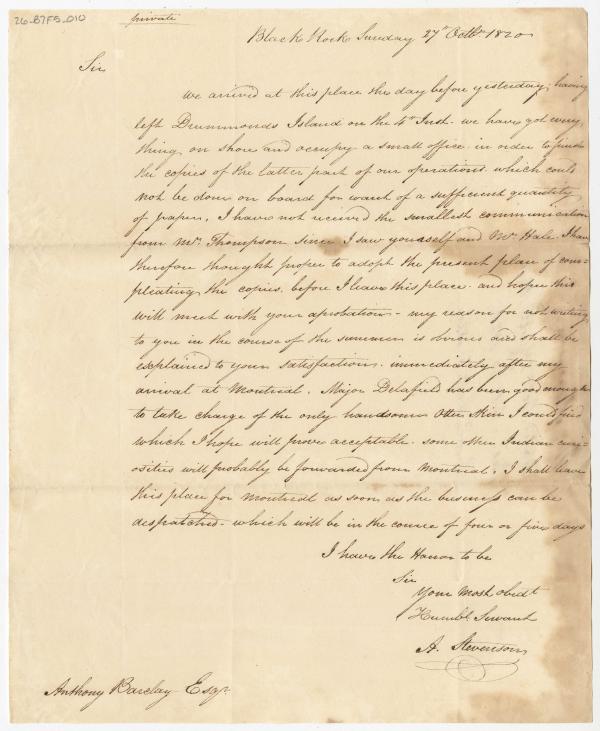 26-B7F5-010
private
Black Rock Sunday 27th Octbr. 1820
Sir
We arrived at this place the day before yesterday; having
left Drummonds Island on the 4th Inst. we have got every
thing on shore and occupy a small office in order to finish
the copies of the latter part of our operations which could
not be done on board for want of a sufficient quantity
of paper. I have not received the smallest communication
from Mr. Thompson since I saw yourself and Mr. Hale. I have
therefore thought proper to adopt the present plan of com-
pleating the copies before I leave this place and hope this
will meet with your aprobation - my reason for not writing
to you in the course of the summer is obvious and shall be
explained to your satisfaction immediately after my
arrival at Montreal. Major Delafield has been good enough
to take charge of the only handsome Otter Skin I could find
which I hope will prove acceptable. some other Indian curi-
osities will probably be forwarded from Montreal. I shall leave
this place for Montreal as soon as the business can be
despatched - which will be in the course of four or five days
I have the Honor to be
Sir
Your Most obedt
Humbl. Servant
A. Stevenson
Anthony Barclay Esqr.